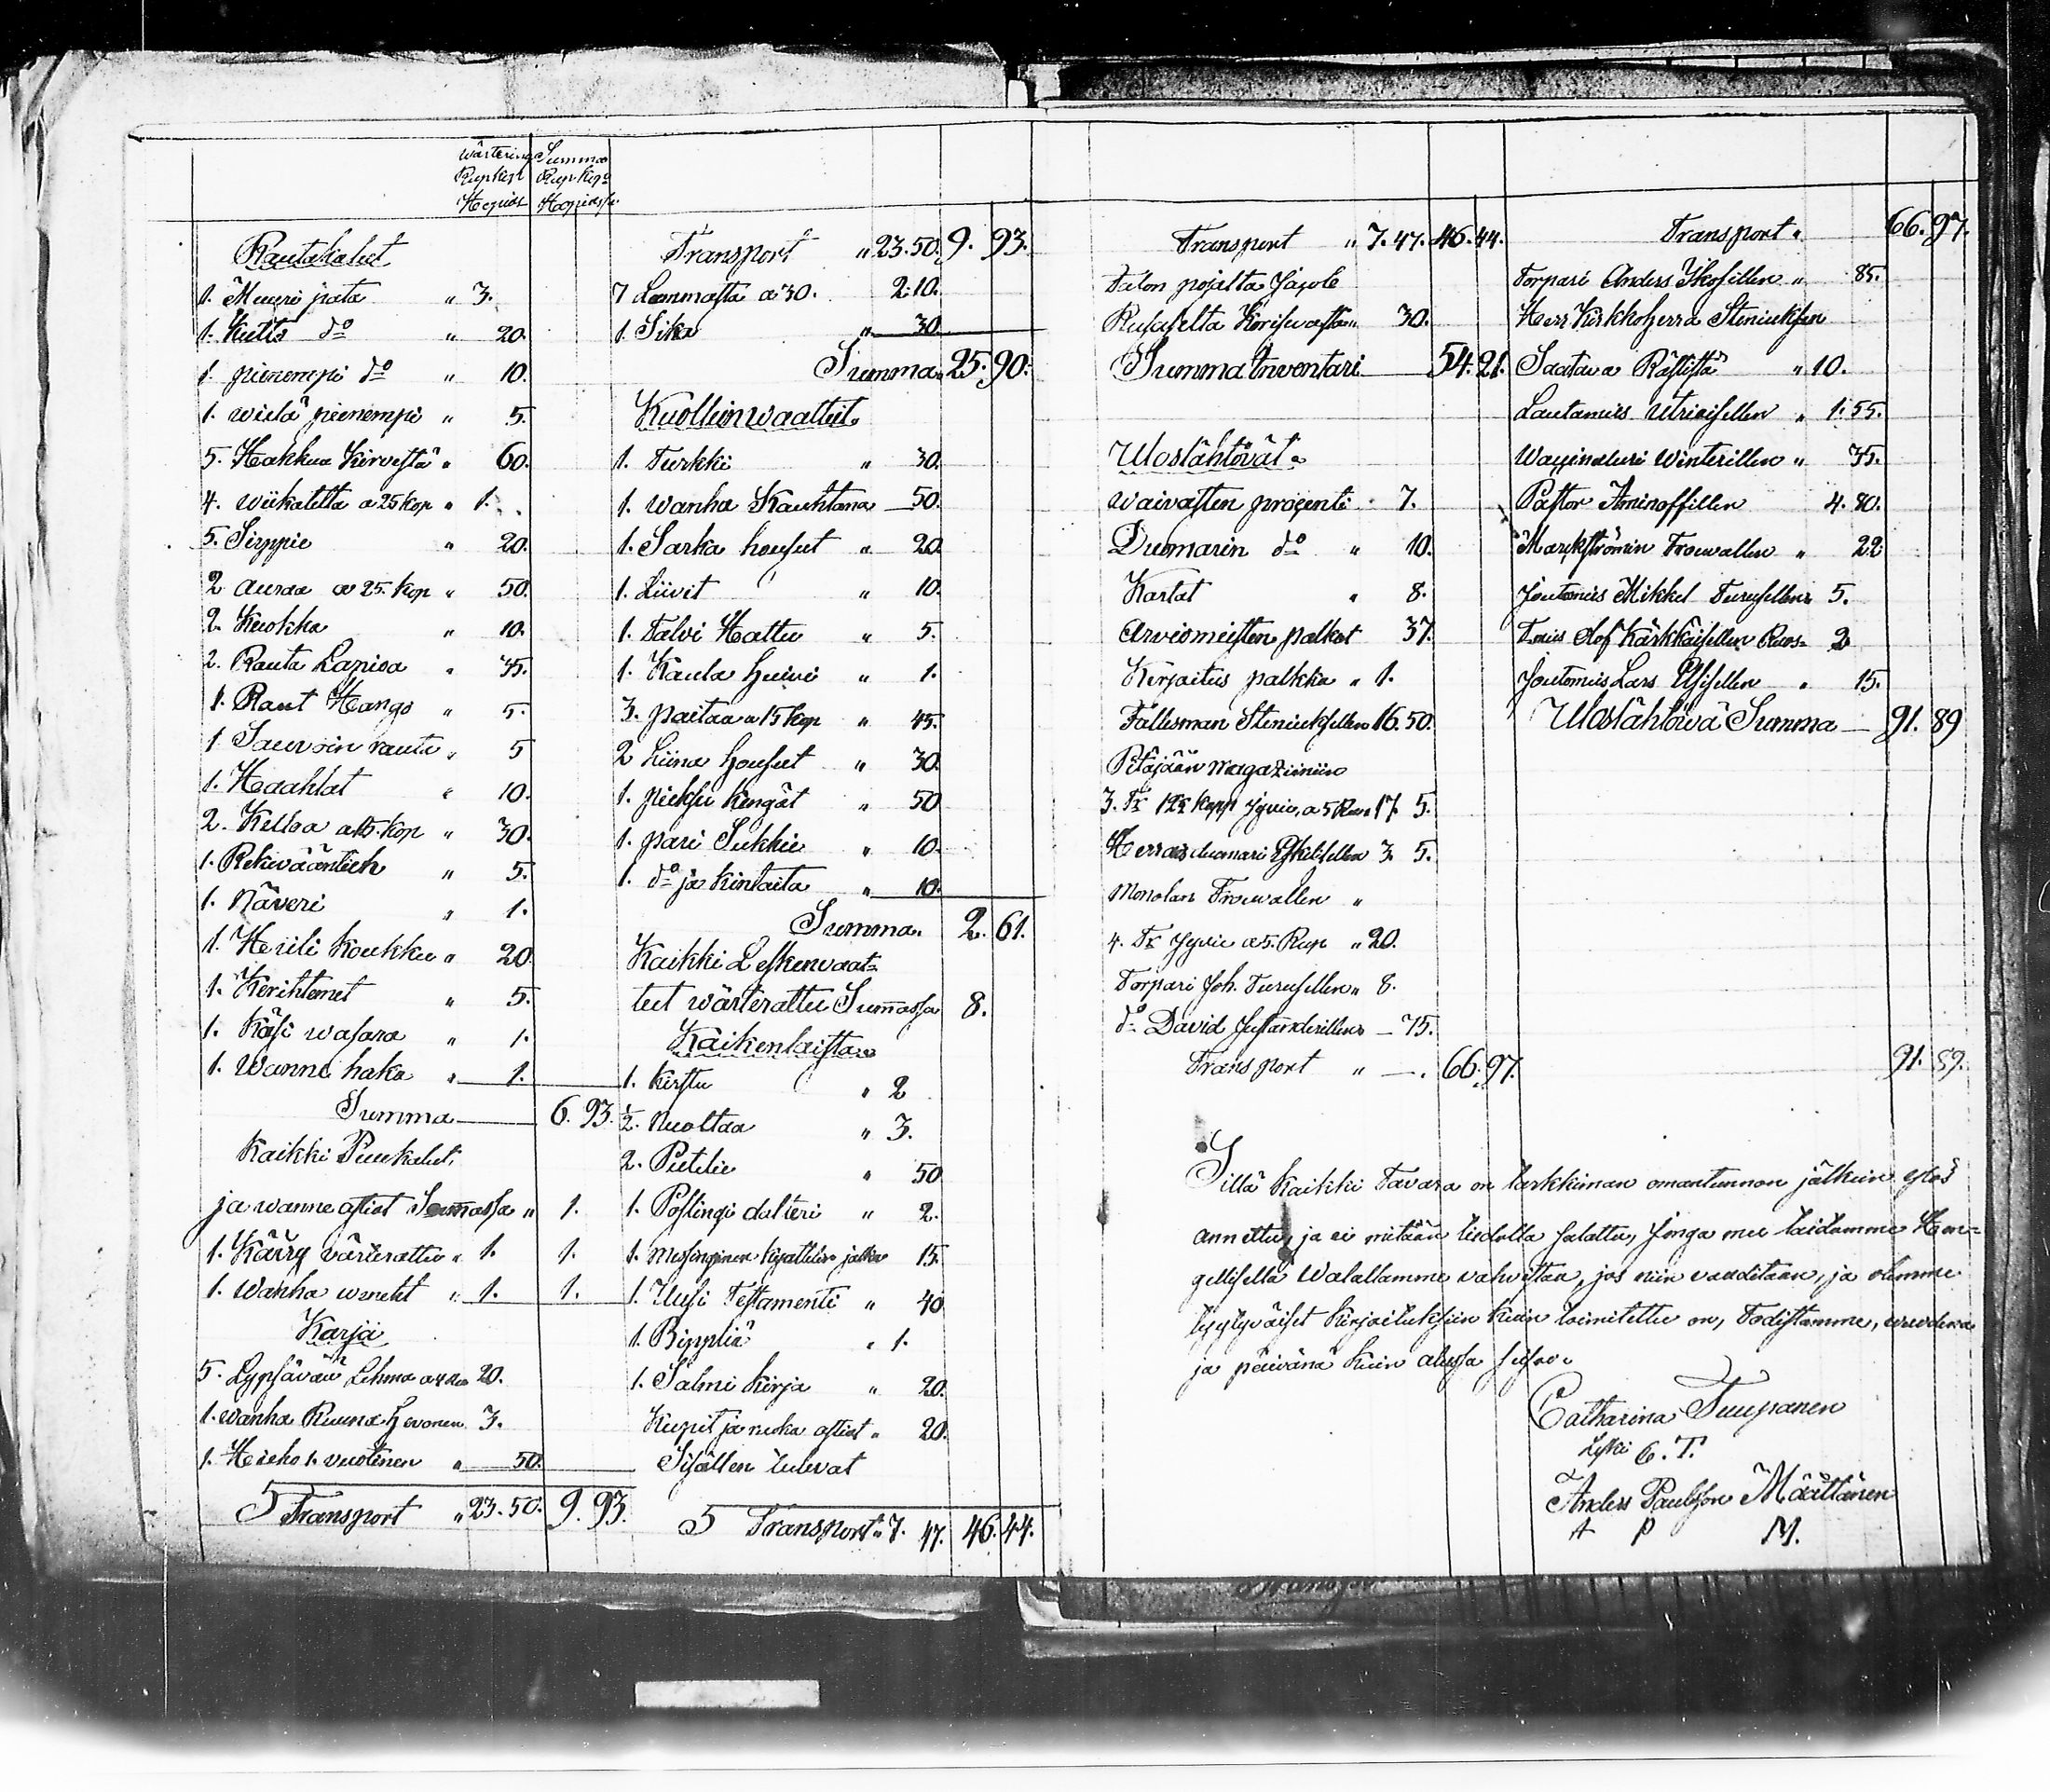 Wärtering Summa
Rup kop Rup kop
Hopias Hopiassa
Rautakalut
1. Muuri pata " 3.
1. Kutto do " 20.
1. pienempi do " 10.
1. wielä pienempi " 5.
5. Hakkua Kirvestä " 60.
4. wiikatetta a 25 kop " 1.
5. Sirppie " 20.
2 auraa a 25. kop " 50.
2. Kuokka " 10.
2. Rauta Lapioa " 35.
1. Raut Hango " 5.
1 Saurvoin rauta " 5
1. Haahlat " 10.
2. Kelloa a 15. kop " 30.
1. " 5.
1. Näveri " 1.
1. koukku " 20
1. Kerihtemet " 5.
1. Käsi wasara " 1.
1. Wanne haka " 1.
Summa 6. 93.
Kaikki Puukalut,
ja wanne astiat Summassa " 1.
1. Kärry värterattu " 1. 1.
1. Wanha " 1. 1.
Karja
5. Lypsävää Lehmä 20.
1. wanha Ruuna Hevonen 3.
1. Hieho 1. vuotinen " 50.
Transport " 23. 50. 9. 93.
Transport " 23. 50. 9. 93.
7 Lammasta a 30. 2.10.
1. Sika " 30
Summa. 25. 90.
Kuolleinwaatteet.
1. Turkki " 30.
1. wanha Kauhtana 50.
1. Sarka housut " 20
1. Liivit " 10.
1. Talvi Hattu " 5.
1. Kaula huivi " 1.
3. paitaa a 15 kop " 45.
2 Liina housut " 30.
1. pieksu kengät " 50
1. pari Sukkie " 10.
1. do ja kintaita " 10.
Summa. 2. 61.
Kaikki Leskenvaat=
teet wärterattu Summassa 8.
Kaikenlaista
1. Kirstu " 2
1/2. Nuottaa " 3.
2. Putelie " 50
1. Poslingi dalteri " 2.
1. messinginen jalka 15.
1. Uusi Testamenti " 40
1. Bipplia " 1.
1. Salmi kirja " 20.
Kupit ja ruoka astiat " 20.
Sisällen tulevat
Transport " 7. 47. 46. 44.
Transport " 7. 47. 46. 44.
Talon pojalta Jacob
30.
Summa Inventari 54. 21.
Uloslähtövät
waivasten procenti 7.
Duomarin do " 10.
Kartat " 8.
Arviomiesten palkat 37.
Kirjoitus palkka " 1.
Fällesman 16. 50.
Pitäjään magaziiniin
3. Tr Jyvie, a 5 17. 5.
Herras duomari 3. 5.
Frouvallen "
4. Tr Jyvie a 5. Rup " 20.
Torpari Joh. Turusellen " 8.
do David 75.
Transport " 66. 97.
Transport " 66. 97.
Torpari Anders " 85.
Herr Kirkkoherra
Saatava Rästistä " 10.
Lautamies Utriaisellen " 1. 55.
Winterillen " 35.
Pastor Aminoffillen 4. 80.
Frouvallen " 22
Joutomies Mikkel Turusellen 5.
Olof Kärkkäisellen 2
Joutomies Lars " 15.
Uloslähtövä Summa 91. 89
91. 89.
Sillä kaikki Tavara on tarkkiman omantunnon jälkein ylös
annettu, ja ei mitään tiedolla salattu, Jonga me taidamme Hen=
gellisellä Walallamme vahvistaa, jos niin vaaditaan, ja olemme
tyytyväiset kirjoitukseen kuin toimitettu on, Todistamme, wuodena
ja päivänä kuin alussa
Catharina Tuupanen
Leski C. T.
Anders Paulsson Määttänen
A P M.